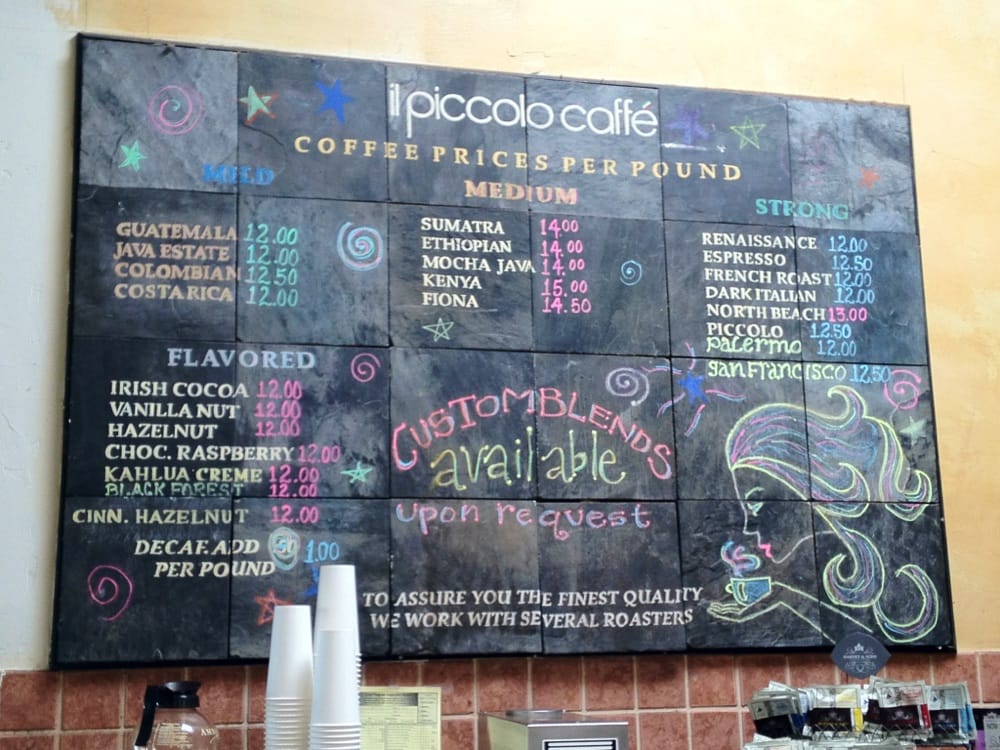 il piccolo caffé
COFFEE PRICES PER POUND
MILD
GUATEMALA 12.00
JAVA ESTATE 12.00
COLOMBIAN 12.50
COSTA RICA 12.00
MEDIUM
SUMATRA 14.00
ETHIOPIAN 14.00
MOCHA JAVA 14.00
KENYA 15.00
FIONA 14.50
STRONG
RENAISSANCE 12.00
ESPRESSO 12.50
FRENCH ROAST 12.00
DARK ITALIAN 12.00
NORTH BEACH 13.00
PICCOLO 12.50
palermo 12.00
san Francisco 12.50
FLAVORED
IRISH COCOA 12.00
VANILLA NUT 12.00
HAZELNUT 12.00
CHOC. RASPBERRY 12.00
KAHLUA CREME 12.00
BLACK FOREST 12.00
CINN. HAZELNUT 12.00
DECAF. ADD 1.00
PER POUND
CUSTOM BLENDS
available
upon request
TO ASSURE YOU THE FINEST QUALITY
WE WORK WITH SEVERAL ROASTERS